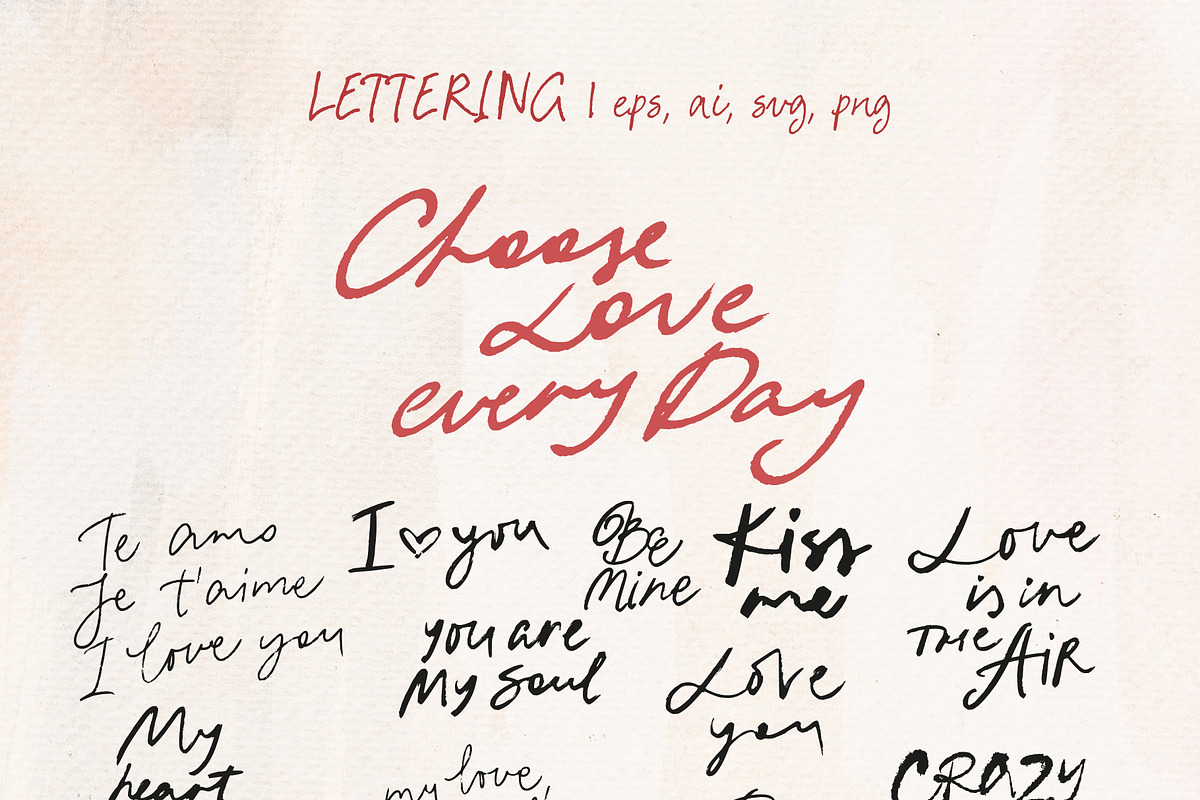 LETTERING | eps, ai, svg, png
Choose
Love
every Day
Te amo
Je t'aime
I love you
I ♡ you
Be
Mine
Kiss
me
Love
is in
THE AiR
you are
My Soul
Love
you
My
heart
my love
CRAZY